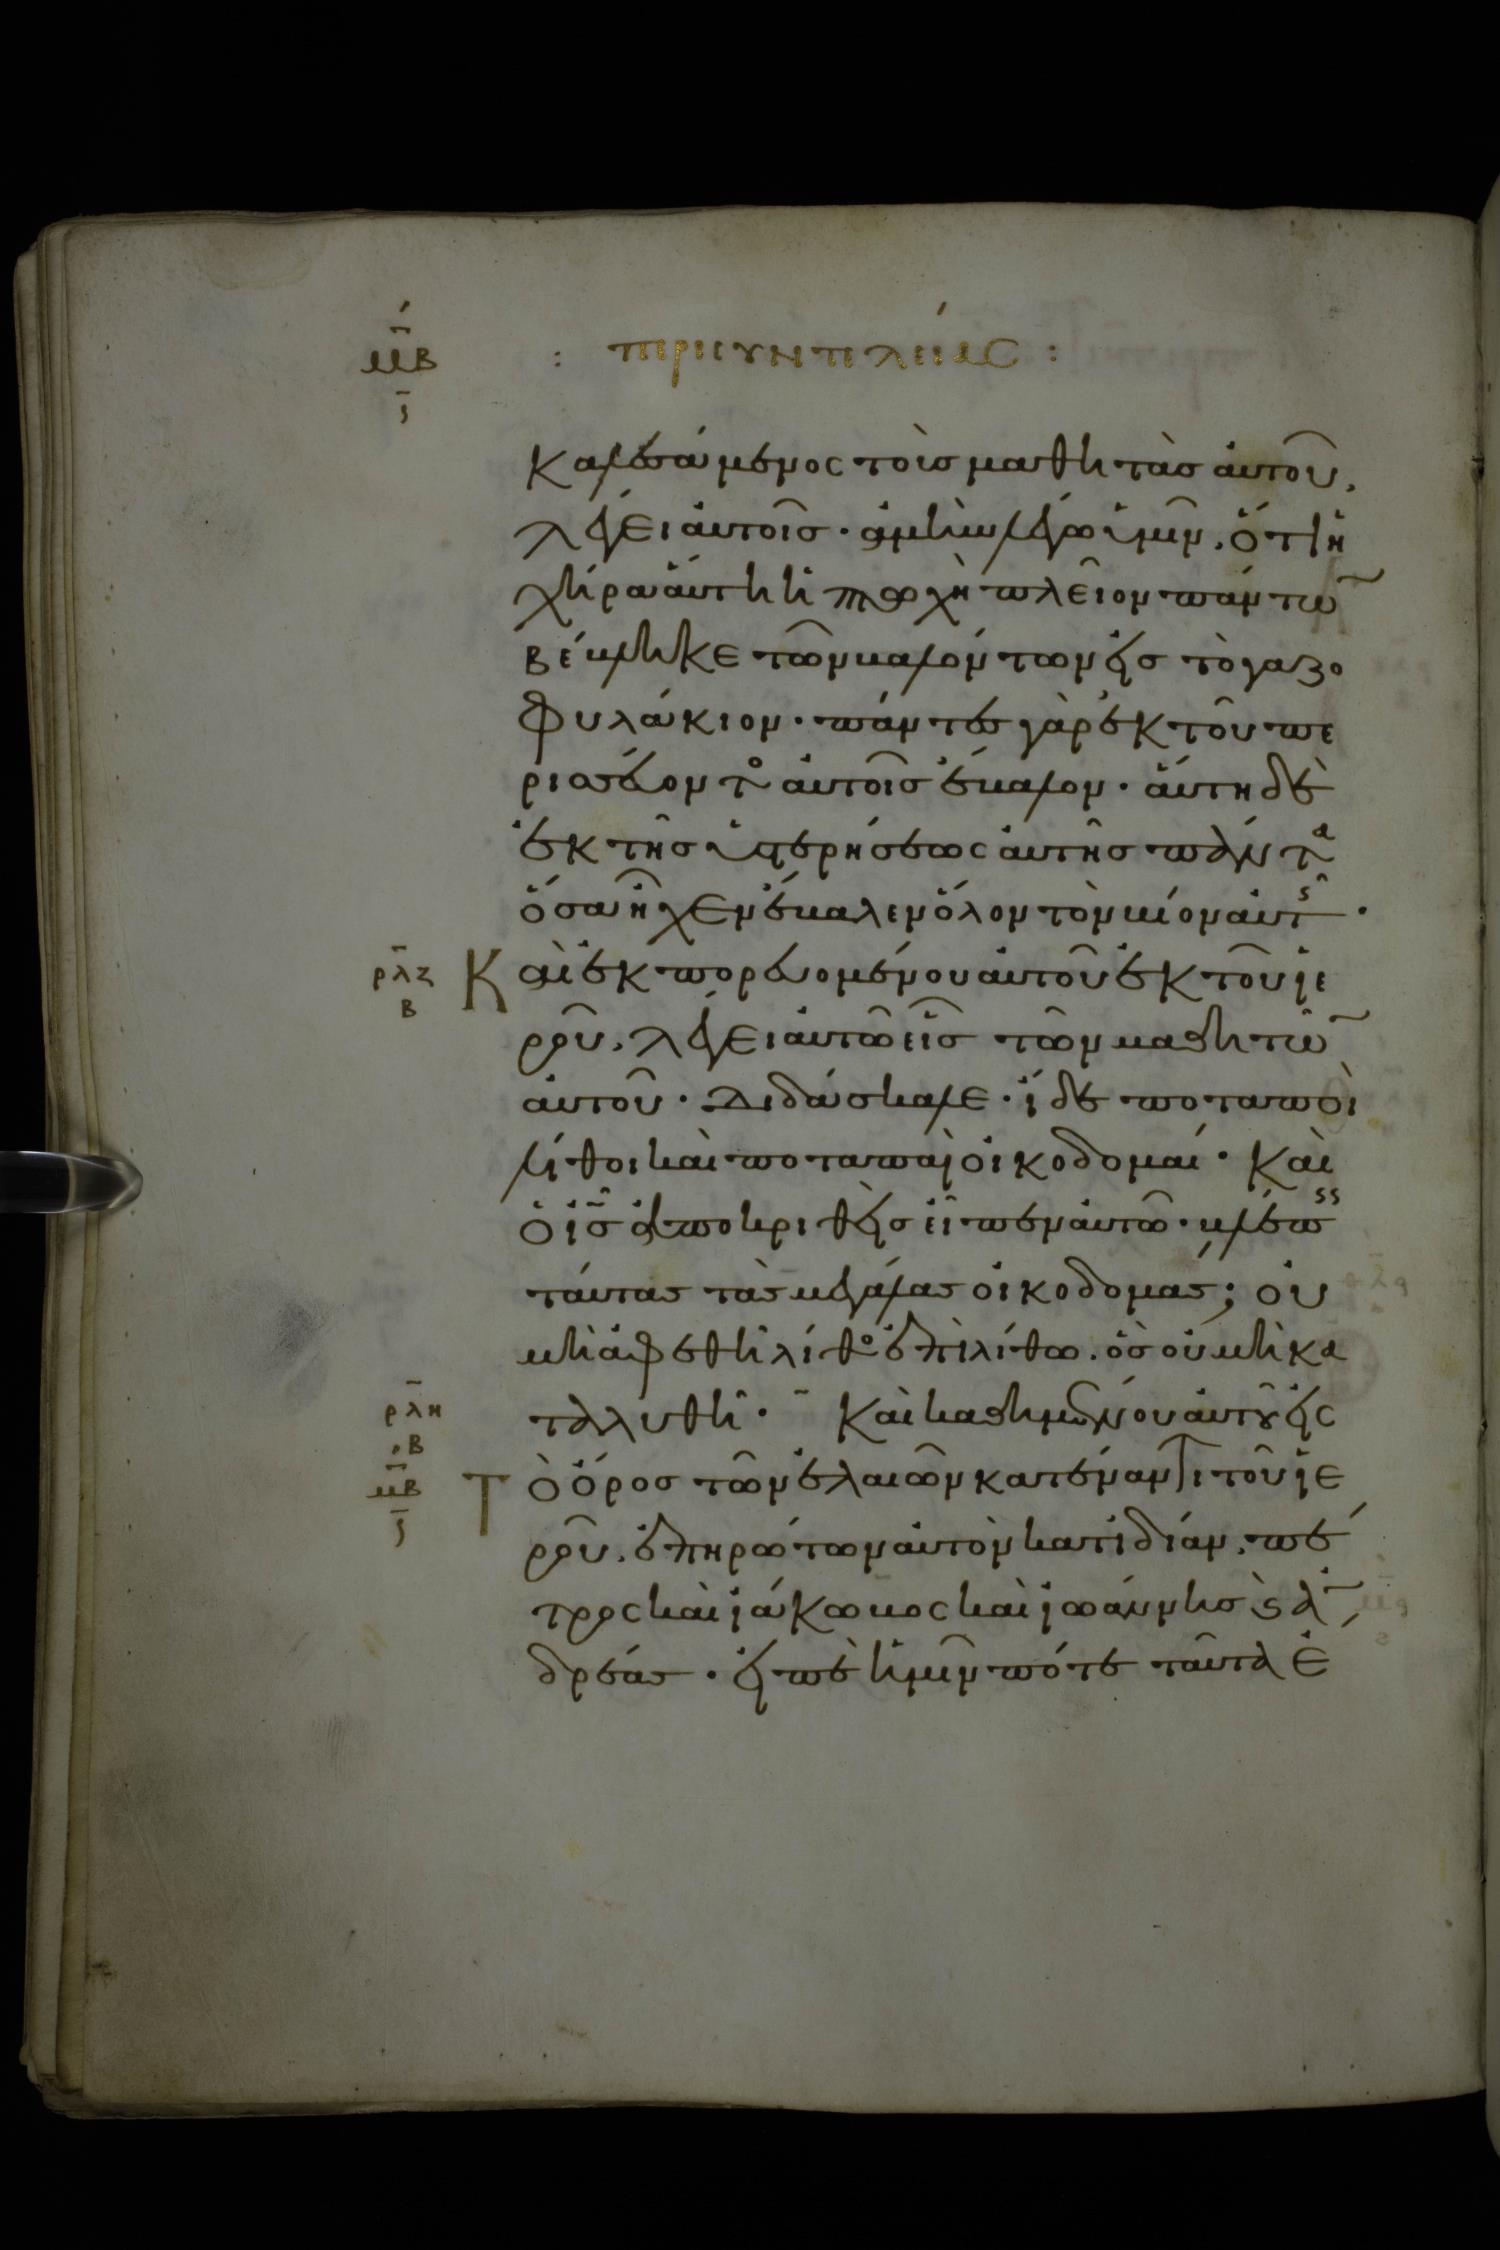 μβ : περι συντελείας :
ς
καλεσάμενος τοὺς μαθητὰς αυτοῦ,
λέγει αυτοῖς · ἀμὴν λέγω ὑμῖν, ὅτι ἡ
χήρα ἅυτη ἡ πτωχὴ πλεῖον πάντω
βέβληκε τῶν βαλόντων εἰς τὸ γαζο
φυλάκιον · πάντες γὰρ ἐκ τοῦ πε
ρισσέυοντο αυτοῖς ἔβαλον · ἅυτη δὲ
ἐκ τῆς ὑστερήσεως αυτῆς πάντα
ὅσα εἶχεν ἔβαλεν ὅλον τὸν βίον αυτῆς ·
ρλζ Καὶ ἐκπορευομένου αυτοῦ ἐκ τοῦ ἱε
β
ροῦ, λέγει αυτῶ εἷς τῶν μαθητῶ
αυτοῦ · Διδάσκαλε · ἴδε ποταποὶ
λίθοι καὶ ποταπαὶ ὀικοδομαί · Καὶ
ὁ ἰς ἀποκριθεὶς εἶπεν αυτῶ · βλέπεις
ταύτας τὰς μεγάλας οἰκοδομάς; οὐ
μὴ ἀφεθῆ λίθος ἐπὶ λίθω, ὃς οὐ μὴ κα
ρλη ταλυθῆ · Καὶ καθημένου αυτοῦ εἰς
β
μβ Τὸ ὄρος τῶν ἐλαιῶν κατέναντι τοῦ ἱε
ς
ροῦ, ἐπηρώτων αυτὸν κατιδίαν, πέ
τρος καὶ ἰάκωβος καὶ ἰωάννης ϗ ἀ
δρέας · εἰπὲ ἡμῖν πότε ταῦτα ἔ